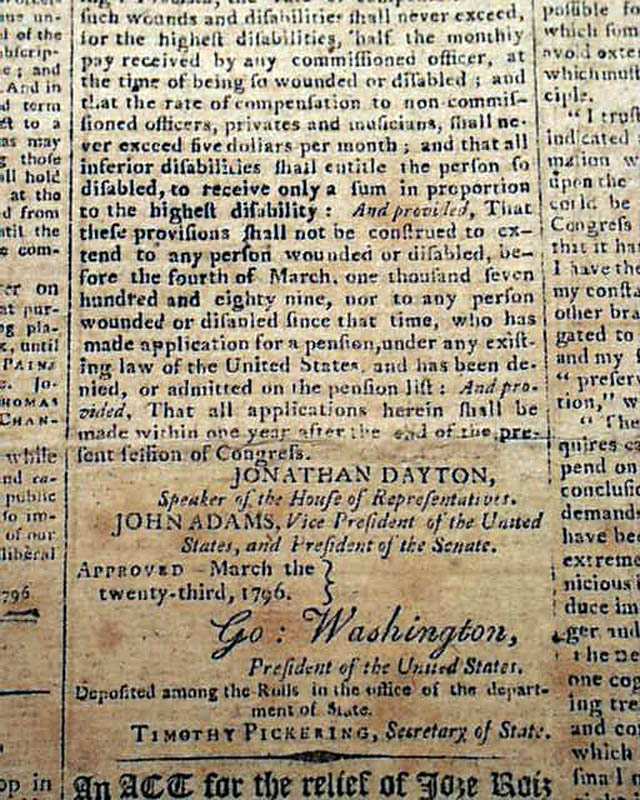 un-
of the
; and
And in
term
to a
as may
thoſe
hold
at the
from
until the
com-
on
pur-
pla-
until
PAINE
Jo-
HOMAS
CHAN-
while
and ca-
public
ſo im-
of our
liberal
1796
in
ſuch wounds and diſabilities ſhall never exceed,
for the higheſt diſabilities, half the monthly
pay received by any commiſſioned officer, at
the time of being ſo wounded or diſabled ; and
that the rate of compenſation to non-commiſ-
ſioned officers, privates and muſicians, ſhall ne-
ver exceed five dollars per month ; and that all
inferior diſabilities ſhall entitle the perſon ſo
diſabled, to receive only a ſum in proportion
to the higheſt diſability : And provided, That
theſe proviſions ſhall not be conſtrued to ex-
tend to any perſon wounded or diſabled, be-
fore the fourth of March, one thouſand ſeven
hundred and eighty nine, nor to any perſon
wounded or diſabled ſince that time, who has
made application for a penſion,under any exiſt-
ing law of the United States, and has been de-
nied, or admitted on the penſion liſt : And pro-
vided, That all applications herein ſhall be
made within one year after the end of the pre-
ſent ſeſſion of Congreſs.
JONATHAN DAYTON,
Speaker of the Houſe of Repreſentatives.
JOHN ADAMS, Vice Preſident of the United
States, and Preſident of the Senate.
APPROVED—March the
twenty-third, 1796.
Go : Waſhington,
Preſident of the United States.
Depoſited among the Rolls in the office of the depart-
ment of State.
TIMOTHY PICKERING, Secretary of State.
An ACT for the relief of Joze Roiz
poſſible
which ſom
avoid exte
which muſt
ciple.
"I truſt
indicated
upon the
could be
Congreſs
that it ha
I have the
my conſta
other bra
gated to
and my
"preſerv
tion," w
"The
quires ca
pend on
concluſio
demands
have bee
extreme
nicious i
duce im
ger and
The ne
one cog
ing tre
and co
which
ſmall